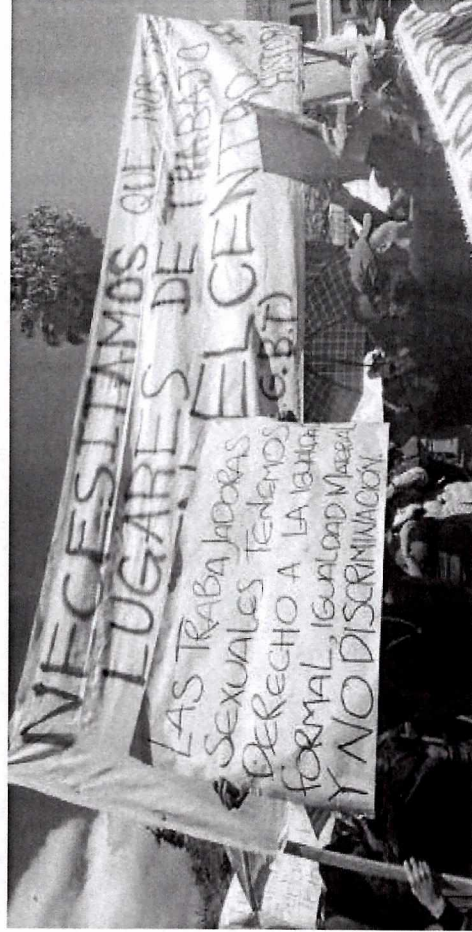 NECESITAMOS QUE NOS
LUGARES DE TRABAJO
EL CENTRO
HISTORI
G.B.T)
LAS TRABAJADORAS
SEXUALES TENEMOS
DERECHO A LA IGUALDA
FORMAL, IGUALDAD MATERIAL
Y NO DISCRIMINACIÓN